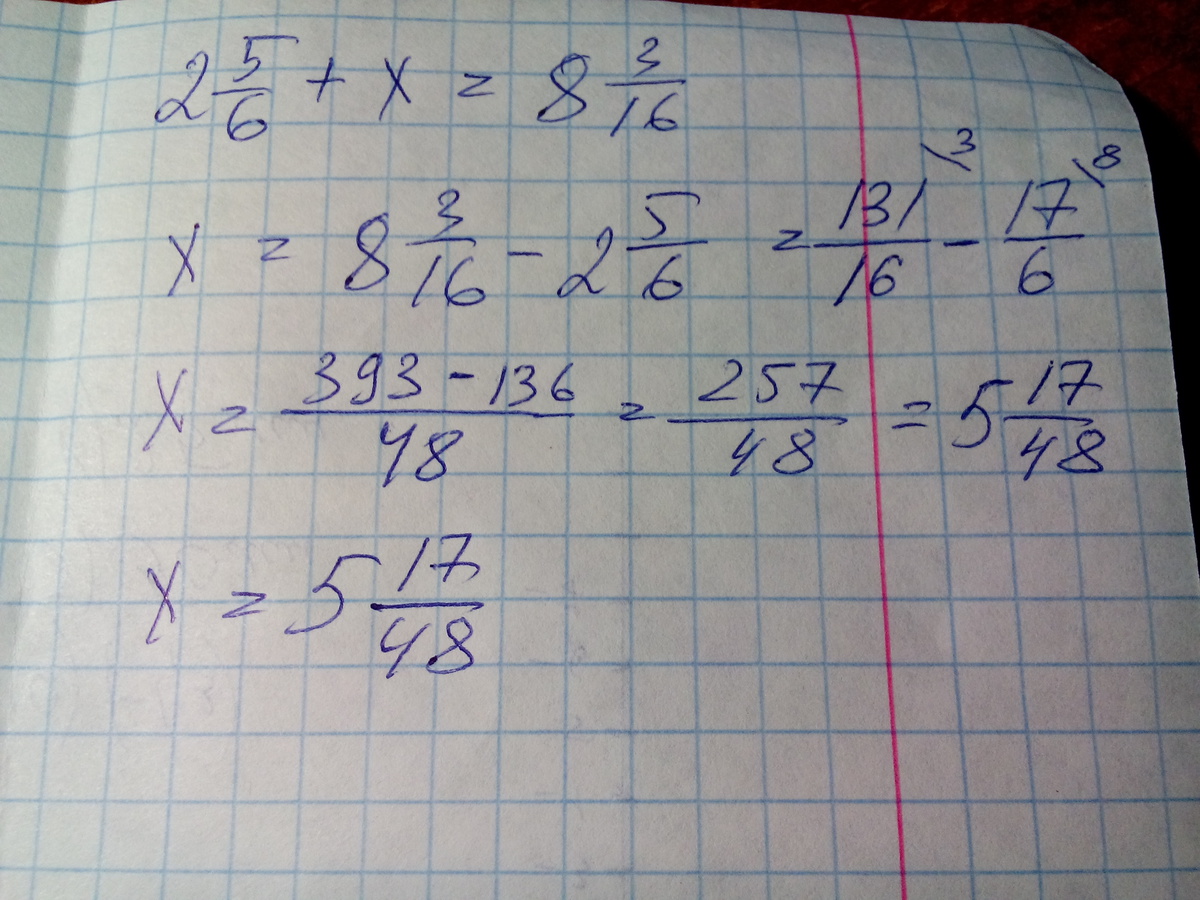 2 5/6 + x = 8 3/16
x = 8 3/16 - 2 5/6 = 131/16 \3 - 17/6 \8
x = 393 - 136/48 = 257/48 = 5 17/48
x = 5 17/48